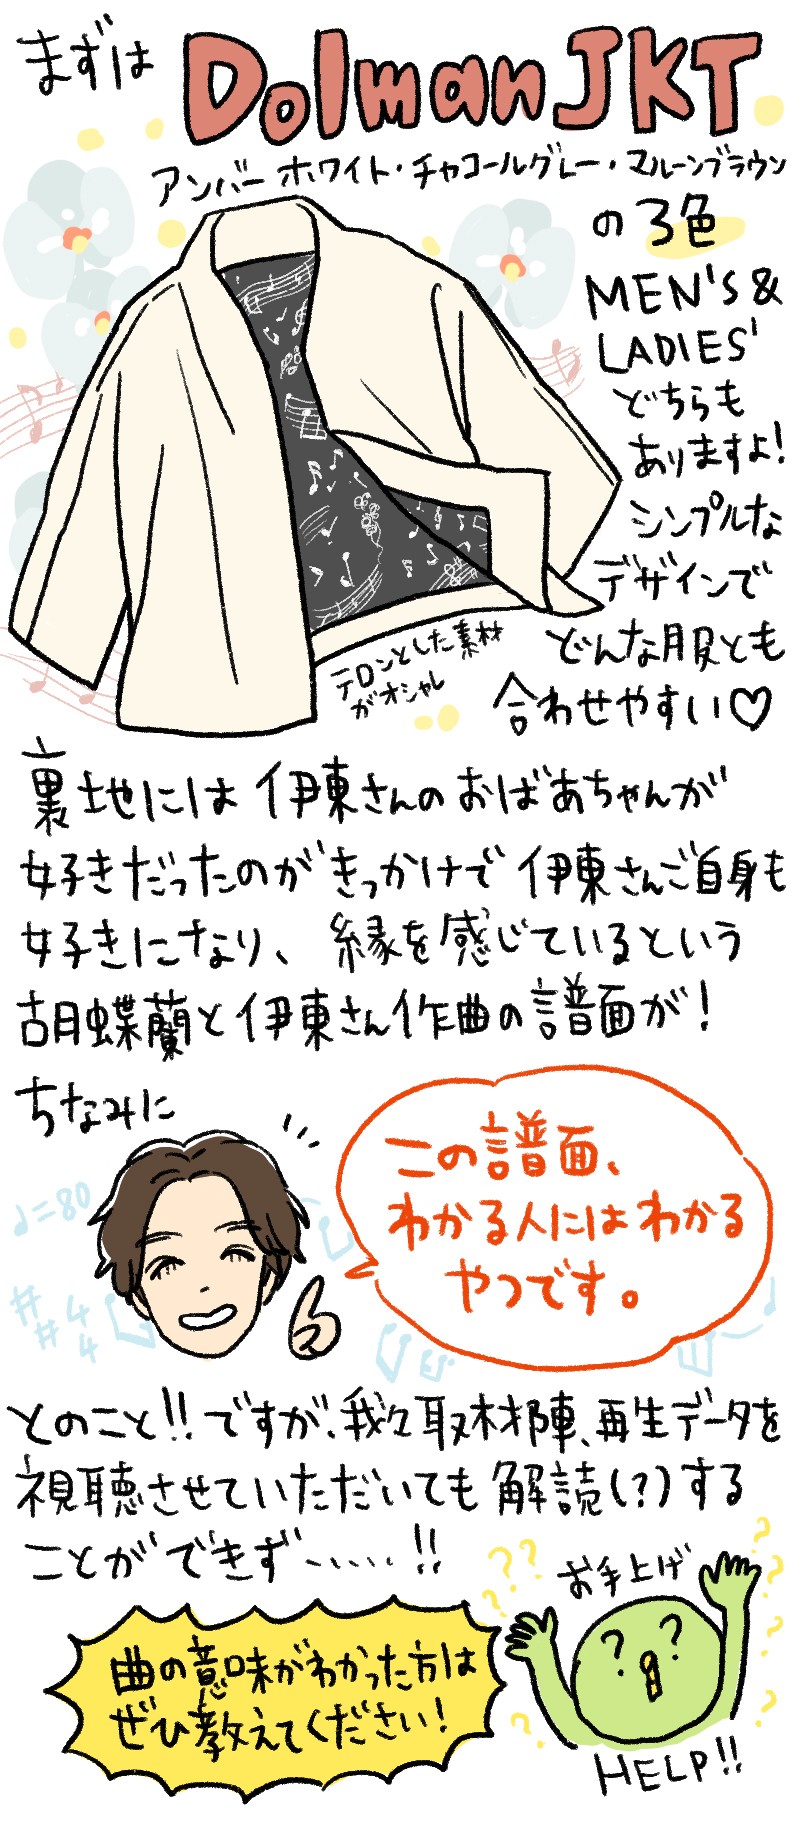 まずは
Dolman JKT
アンバーホワイト・チャコールグレー・マルーンブラウン
の3色
MEN'S &
LADIES'
どちらも
ありますよ!
シンプルな
デザインで
どんな服とも
合わせやすい♡
テロンとした素材
がオシャレ
裏地には伊東さんのおばあちゃんが
好きだったのがきっかけで伊東さんご自身も
好きになり、縁を感じているという
胡蝶蘭と伊東さん作曲の譜面が!
ちなみに
この譜面、
わかる人にはわかる
やつです。
♩=80
# 4
# 4
とのこと!!ですが、我々取材陣、再生データを
視聴させていただいても解読(?)する
ことができず……!!
お手上げ
曲の意味がわかった方は
ぜひ教えてください!
HELP!!